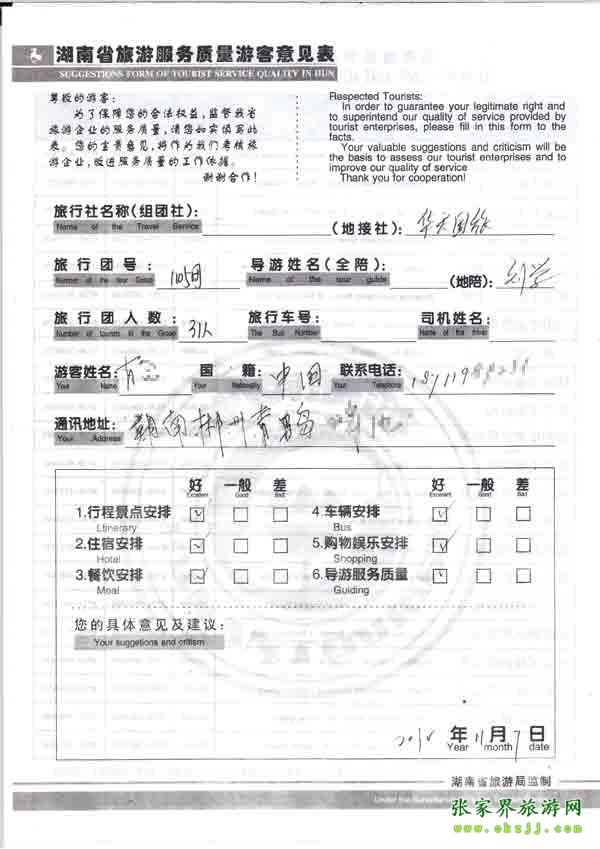 湖南省旅游服务质量游客意见表
SUGGESTIONS FORM OF TOURIST SERVICE QUALITY IN HUN
尊敬的游客：
为了保障您的合法权益，监督我省
旅游企业的服务质量，请您如实填写此
表。您的宝贵意见，将作为我们考核旅
游企业，改进服务质量的工作依据。
谢谢合作！
Respected Tourists:
In order to guarantee your legitimate right and
to superintend our quality of service provided by
tourist enterprises, please fill in this form to the
facts.
Your valuable suggestions and criticism will be
the basis to assess our tourist enterprises and to
improve our quality of service
Thank you for cooperation!
旅行社名称(组团社)： (地接社)： 华天国旅
Name of the Travel Service
旅行团号： 1105 导游姓名(全陪)： (地陪)： 刘学
Number of the tour Group Name of the tour guide
旅行团人数： 31人 旅行车号： 司机姓名：
Number of tourists in the Group The Bus Number Name of the driver
游客姓名： 国籍： 中国 联系电话：
Your Name Your Nationality Your Telephone
通讯地址： 湖南郴州
Your Address
好 一般 差 好 一般 差
Excellent Good Bad Excellent Good Bad
1.行程景点安排 4.车辆安排
Ltinerary Bus
2.住宿安排 5.购物娱乐安排
Hotal Shopping
3.餐饮安排 6.导游服务质量
Meal Guiding
您的具体意见及建议：
Your suggetions and critism
年 11月7日
Year month date
湖南省旅游局监制
Under the
张家界旅游网
www.okzjj.com